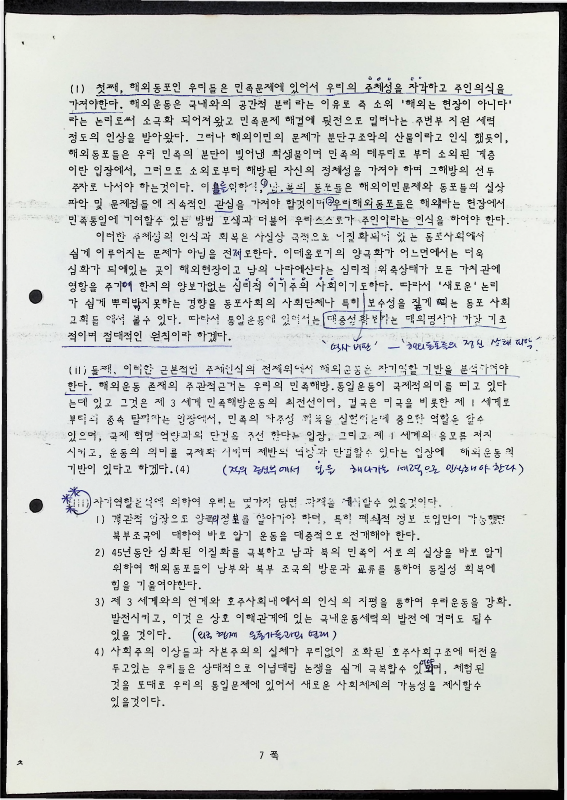 (i) 첫째, 해외동포인 우리들은 민족문제에 있어서 우리의 주체성을 자각하고 주인의식을
가져야한다. 해외운동은 국내와의 공간적 분리라는 이유로 즉 소위 '해외는 현장이 아니다'
라는 논리로써 소극화 되어져왔고 민족문제 해결에 뒷전으로 밀려나는 주변부 지원 세력
정도의 인상을 받아왔다. 그러나 해외이민의 문제가 분단구조악의 산물이라고 인식 했듯이,
해외동포들은 우리 민족의 분단이 빚어낸 희생물이며 민족의 테두리로 부터 소외된 계층
이란 입장에서, 그러므로 소외로부터 해방된 자신의 정체성을 가져야 하며 그해방의 선두
주자로 나서야 하는것이다. 이를위하여, 남.북의 동포들은 해외이민문제와 동포들의 실상
파악 및 문제점들에 지속적인 관심을 가져야 할것이며 우리해외동포들은 해외라는 현장에서
민족통일에 기여할수 있는 방법 모색과 더불어 우리스스로가 주인이라는 인식을 하여야 한다.
이러한 주체성의 인식과 회복은 사실상 극적으로 이질화되어 있는 동포사회에서
쉽게 이루어지는 문제가 아님을 전제로한다. 이데올로기의 양극화가 어느면에서는 더욱
심화가 되어있는 곳이 해외현장이고 남의 나라에산다는 심리적 위축상태가 모든 가치관에
영향을 주기에 한치의 양보가없는 심리적 이기주의 사회이기도하다. 따라서 '새로운' 논리
가 쉽게 뿌리받지못하는 경향을 동포사회의 사회단체나 특히 보수성을 짙게 띠는 동포 사회
교회들 에서 볼수 있다. 따라서 통일운동에 있어서는 대중성확보라는 대의명사가 가장 기초
적이며 절대적인 원칙이라 하겠다.
(ii) 둘째, 이러한 근본적인 주체인식의 전제위에서 해외운동은 자기역할 기반을 분석가져야
한다. 해외운동 존재의 주관적근거는 우리의 민족해방.통일운동이 국제적의미를 띠고 있다
는데 있고 그것은 제 3 세계 민족해방운동의 최전선이며, 결국은 미국을 비롯한 제 1 세계로
부터의 종속 탈피라는 입장에서, 민족의 자주성 회복을 실현하는데 중요한 역할을 할수
있으며, 국제 혁명 역량과의 단결을 우선 한다는 입장, 그리고 제 1 세계의 음모를 저지
시키고, 운동의 의미를 국제화 시키며 제반의 역량과 단결할수 있다는 입장에 해외운동의
기반이 있다고 하겠다.(4)
(iii) 자기역할분석에 의하여 우리는 몇가지 당면 과제를 제시할수 있을것이다.
1) 객관적 입장으로 양국의정보를 알아가야 하며, 특히 폐쇄적 정보 도입만이 가능했던
북부조국에 대하여 바로 알기 운동을 대중적으로 전개해야 한다.
2) 45년동안 심화된 이질화를 극복하고 남과 북의 민족이 서로의 실상을 바로 알기
위하여 해외동포들이 남부와 북부 조국의 방문과 교류를 통하여 동질성 회복에
힘을 기울여야한다.
3) 제 3 세계와의 연계와 호주사회내에서의 인식의 지평을 통하여 우리운동을 강화.
발전시키고, 이것은 상호 이해관계에 있는 국내운동세력의 발전에 격려도 될수
있을 것이다.
4) 사회주의 이상들과 자본주의의 실체가 무리없이 조화된 호주사회구조에 터전을
두고있는 우리들은 상대적으로 이념대립 논쟁을 쉽게 극복할수 있으며, 체험된
것을 토대로 우리의 통일문제에 있어서 새로운 사회체제의 가능성을 제시할수
있을것이다.
7 쪽